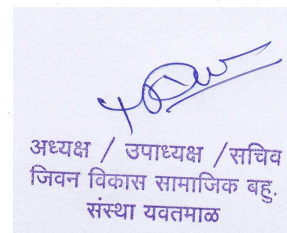 अध्यक्ष / उपाध्यक्ष /सचिव
जिवन विकास सामाजिक बहु.
संस्था यवतमाळ